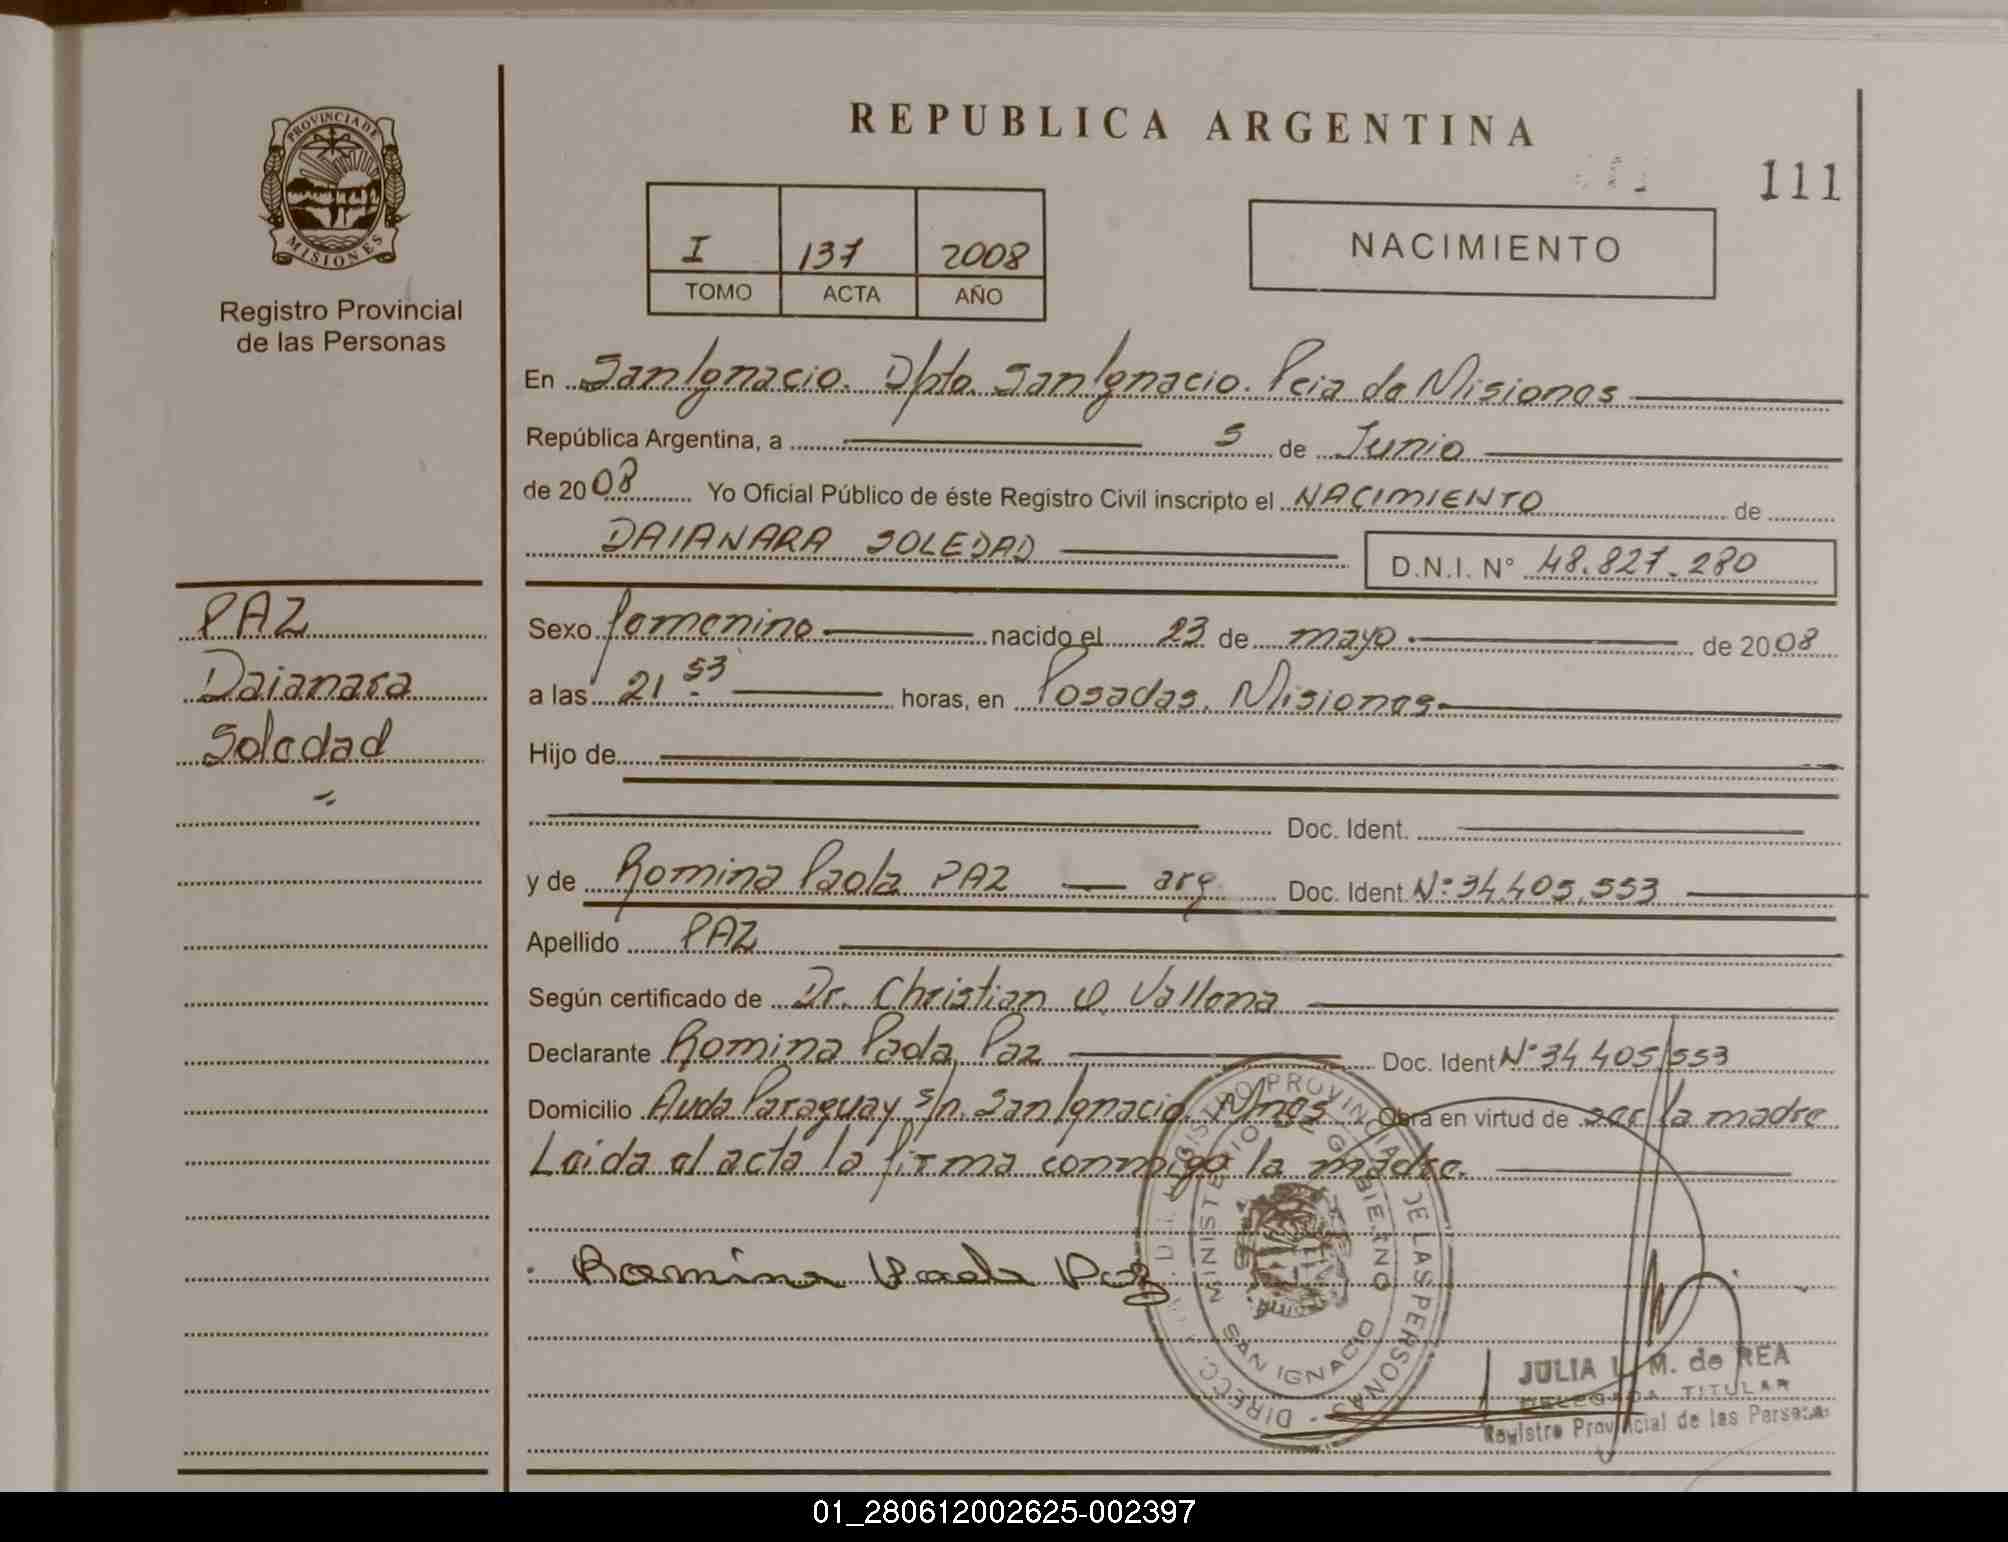 REPUBLICA ARGENTINA
111
PROVINCIA DE
MISIONES
Registro Provincial
de las Personas
I 137 2008
TOMO ACTA AÑO
NACIMIENTO
En San Ignacio. Dpto. San Ignacio. Pcia de Misiones
República Argentina, a 5 de Junio
de 2008 Yo Oficial Público de éste Registro Civil inscripto el NACIMIENTO de
DAIANARA SOLEDAD D.N.I. N° 48.827.280
PAZ
Daianara
Soledad
Sexo femenino nacido el 23 de mayo de 2008
a las 21 53 horas, en Posadas, Misiones
Hijo de
Doc. Ident.
y de Romina Paola PAZ arg. Doc. Ident. N° 34.405.553
Apellido PAZ
Según certificado de Dr. Christian O. Vallena
Declarante Romina Paola Paz Doc. Ident N° 34 405.553
Domicilio Avda Paraguay s/n. San Ignacio. Mnes Obra en virtud de ser la madre
Leida el acta la firma conmigo la madre.
Romina Paola Paz
REGISTRO PROVINCIAL DE LAS PERSONAS
MINISTERIO DE GOBIERNO
SAN IGNACIO
JULIA L. M. de REA
DELEGADA TITULAR
Registro Provincial de las Personas
01_280612002625-002397